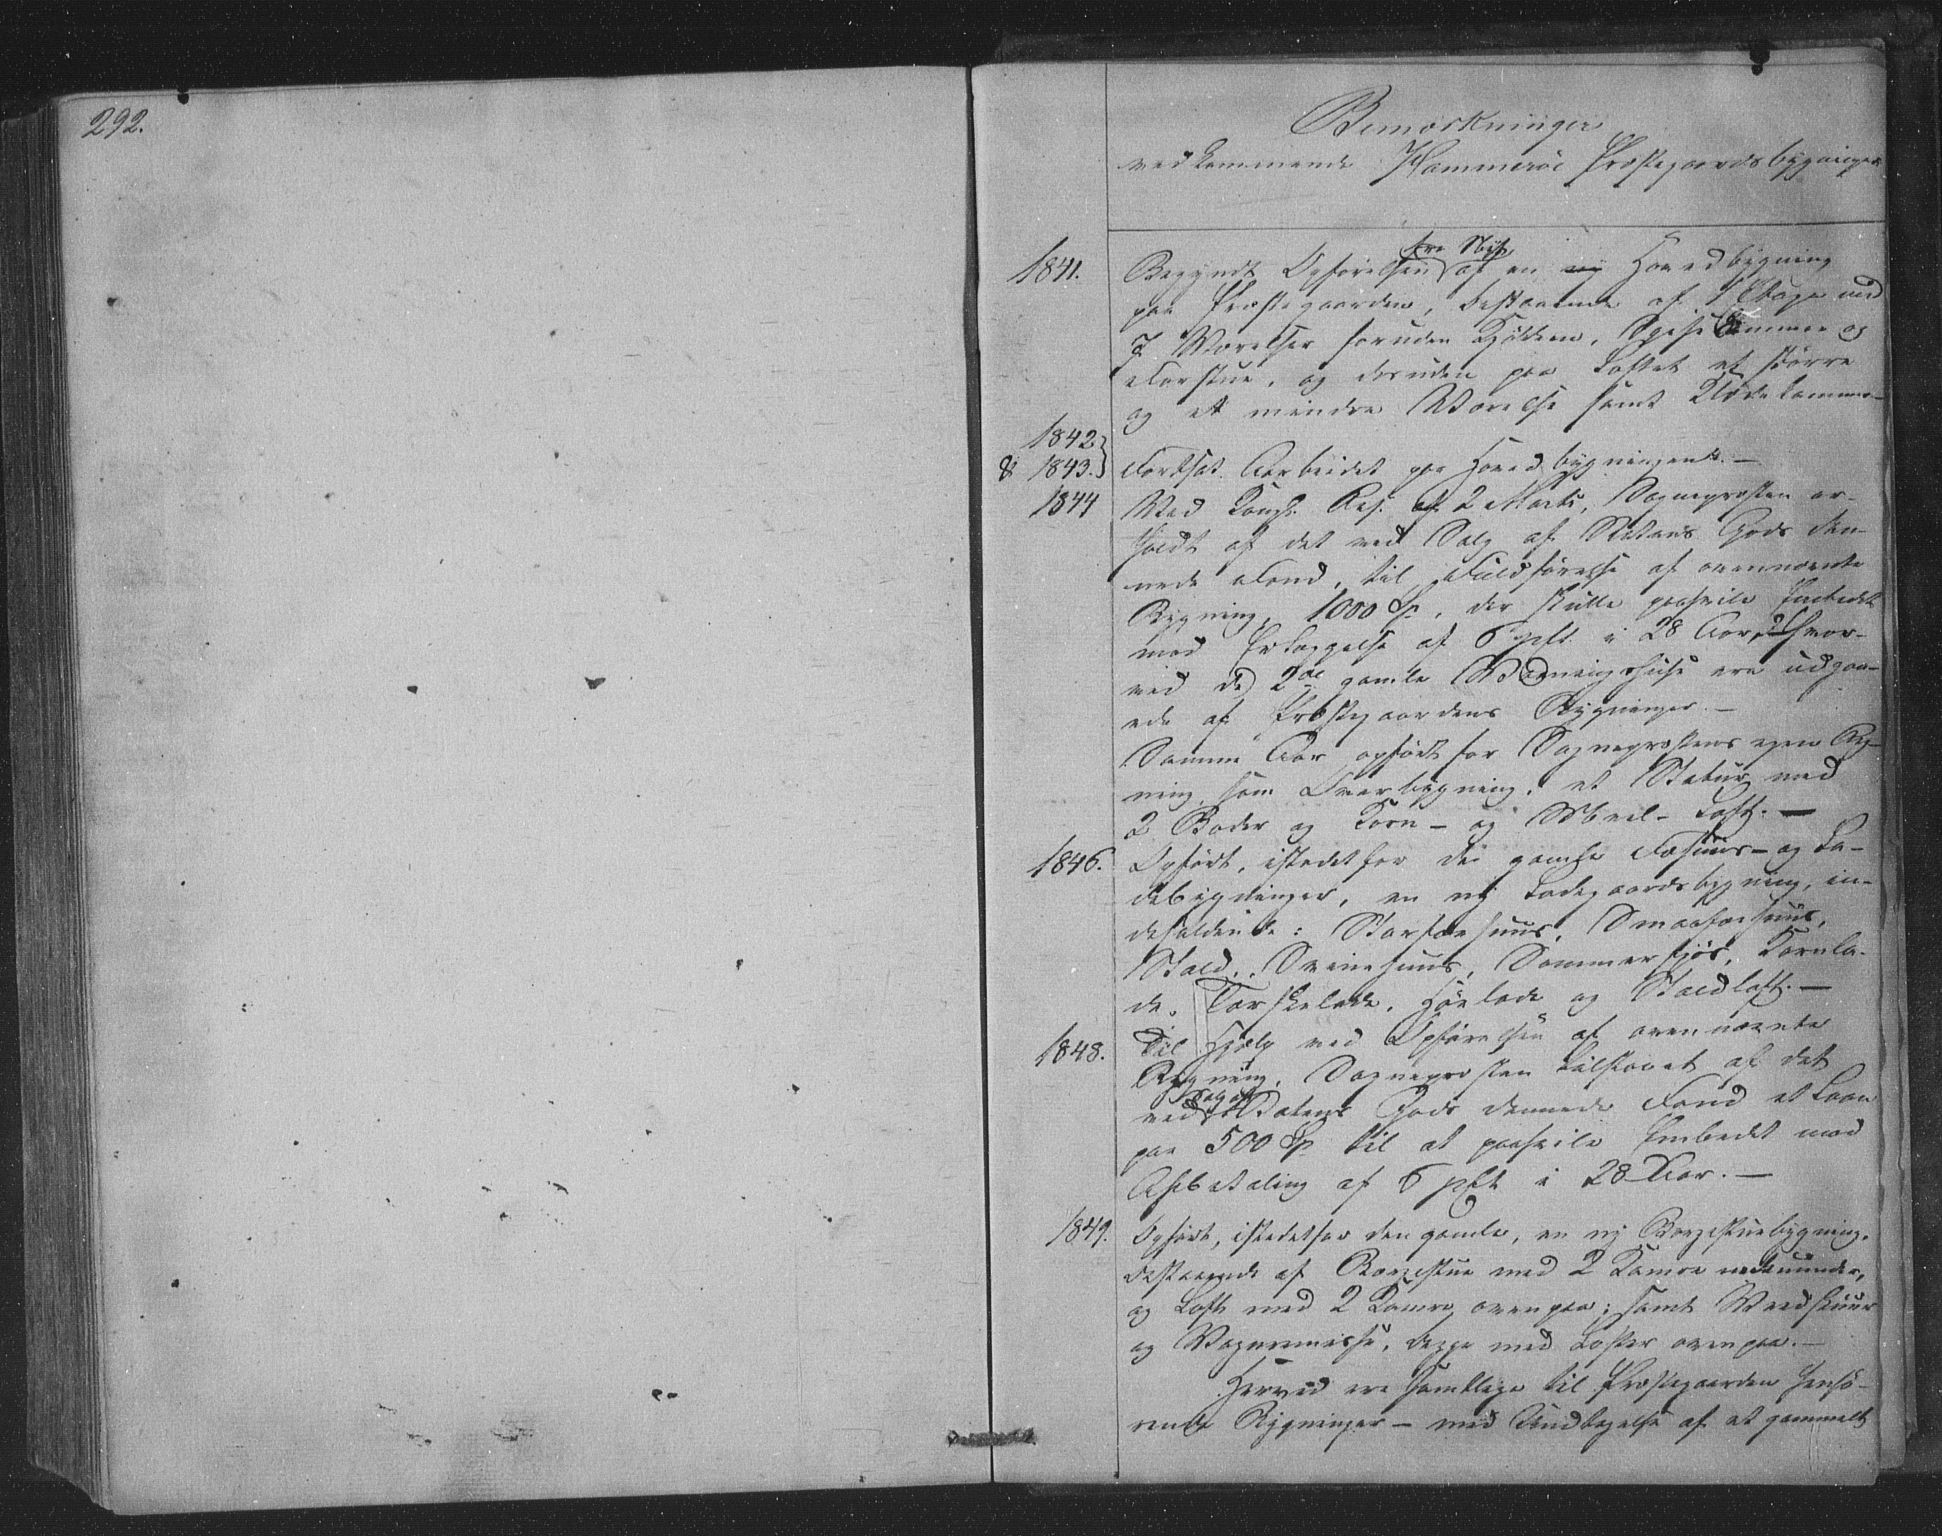 292.
Bemærkninger
vedkommende Hammerøe Præstegaardsbygninger
1841. Begyndt Opførelsen af en ny Hovedbygning
paa Præstegaarden, bestaaende af 1 Etage med
7 Værelser foruden Kjökken, Spisekammer og
Forstue, og desuden paa Loftet et större
og et mindre Værelse samt Klædekammer
1842
& 1843. Fortsat Arbeidet paa Hovedbygningen. —
1844 Ved Kongl. Res. af 2 Marts, Sognepræsten er-
holdt af det ved Salg af Statens Gods dan-
nede Fond, til Fuldførelse af ovennævnte
Bygning, 1000 Sp. der skulle paahvile Embedet
mod Erlæggelse af 6 pCt. i 28 Aar, hvor-
ved de 2de gamle Vaaningshuse ere udgaa-
ede af Præstegaardens Bygninger. —
Samme Aar opført for Sognepræstens egen Reg-
ning, som Overbygning, et Stabur med
2 Boder og Korn- og Meel-Loft. —
1846. Opført, istedetfor de gamle Fæhuus- og La-
debygninger, en ny Ladegaardsbygning, in-
deholdende: Storfæhuus, Smaafæhuus,
Stald, Svinehuus, Sommerfjös, Kornla-
de, Torskelade, Höelade og Staldloft. —
1848. Til Hjælp ved Opförelsen af ovennævnte
Bygning, Sognepræsten tilstaaet af det
ved Salg af Statens Gods dannede Fond et Laan
paa 500 Sp. til at paahvile Embedet mod
Afbetaling af 6 pCt i 28 Aar. —
1849. Opført, istedetfor den gamle, en ny Borgestuebygning,
bestaaende af Borgestue med 2 Kamre nedenunder,
og Loft med 2 Kamre ovenpaa; samt Vedskuur
og Vognremisse, begge med Lofter ovenpaa. —
Herved ere samtlige til Præstegaarden henhö-
rende Bygninger — med Undtagelse af et gammelt